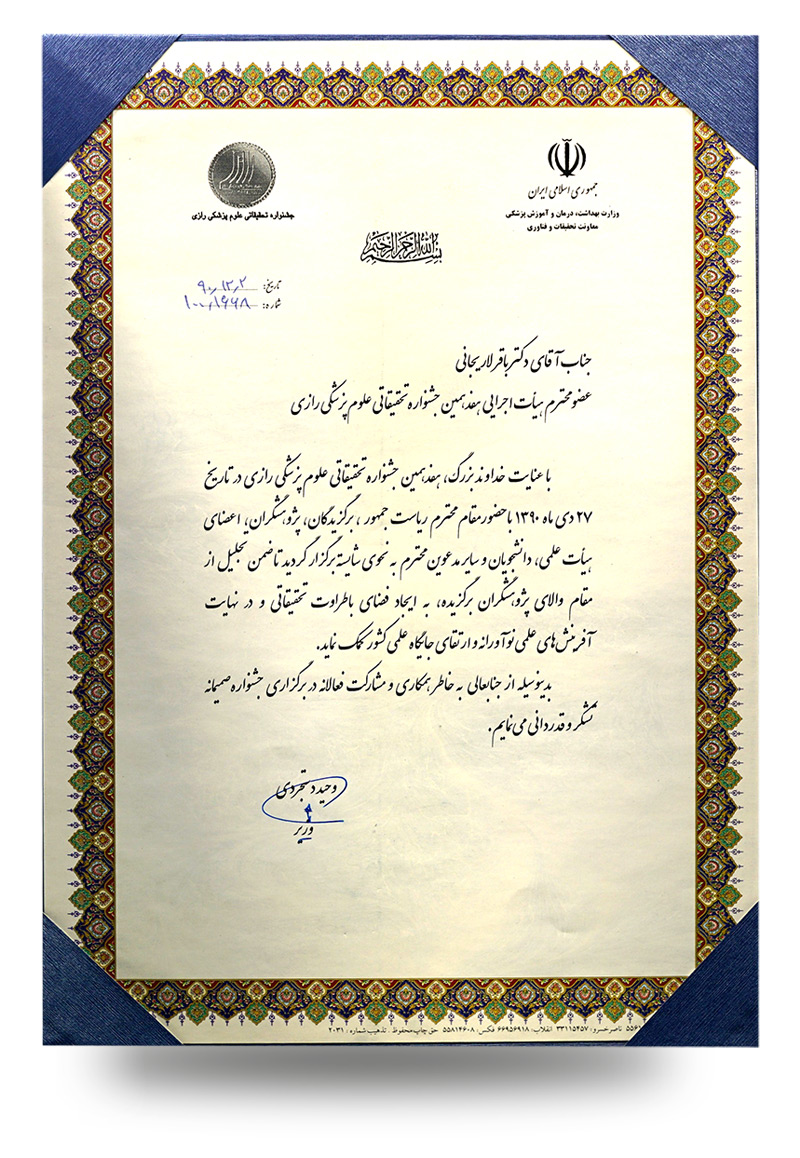 جمهوری اسلامی ایران
وزارت بهداشت، درمان و آموزش پزشکی
معاونت تحقیقات و فناوری
جشنواره تحقیقاتی علوم پزشکی رازی
بسم الله الرحمن الرحیم
تاریخ: ۹۰/۱۲/۲
شماره: ۱۰۰/۱۶۶۸
جناب آقای دکتر باقر لاریجانی
عضو محترم هیأت اجرایی هفدهمین جشنواره تحقیقاتی علوم پزشکی رازی
با عنایت خداوند بزرگ، هفدهمین جشنواره تحقیقاتی علوم پزشکی رازی در تاریخ
۲۷ دی ماه ۱۳۹۰ با حضور مقام محترم ریاست جمهور، برگزیدگان، پژوهشگران، اعضای
هیأت علمی، دانشجویان و سایر مدعوین محترم به نحوی شایسته برگزار گردید تا ضمن تجلیل از
مقام والای پژوهشگران برگزیده، به ایجاد فضای باطراوت تحقیقاتی و در نهایت
آفرینش‌های علمی نوآورانه و ارتقای جایگاه علمی کشور کمک نماید.
بدینوسیله از جنابعالی به خاطر همکاری و مشارکت فعالانه در برگزاری جشنواره صمیمانه
تشکر و قدردانی می‌نمایم.
وحید دستجردی
وزیر
ناصرخسرو: ۳۳۱۱۵۴۵۷ انقلاب: ۶۶۹۵۶۹۱۸ فکس: ۵۵۸۱۴۶۰۸ حق چاپ محفوظ . تذهیب شماره: ۲۰۳۱